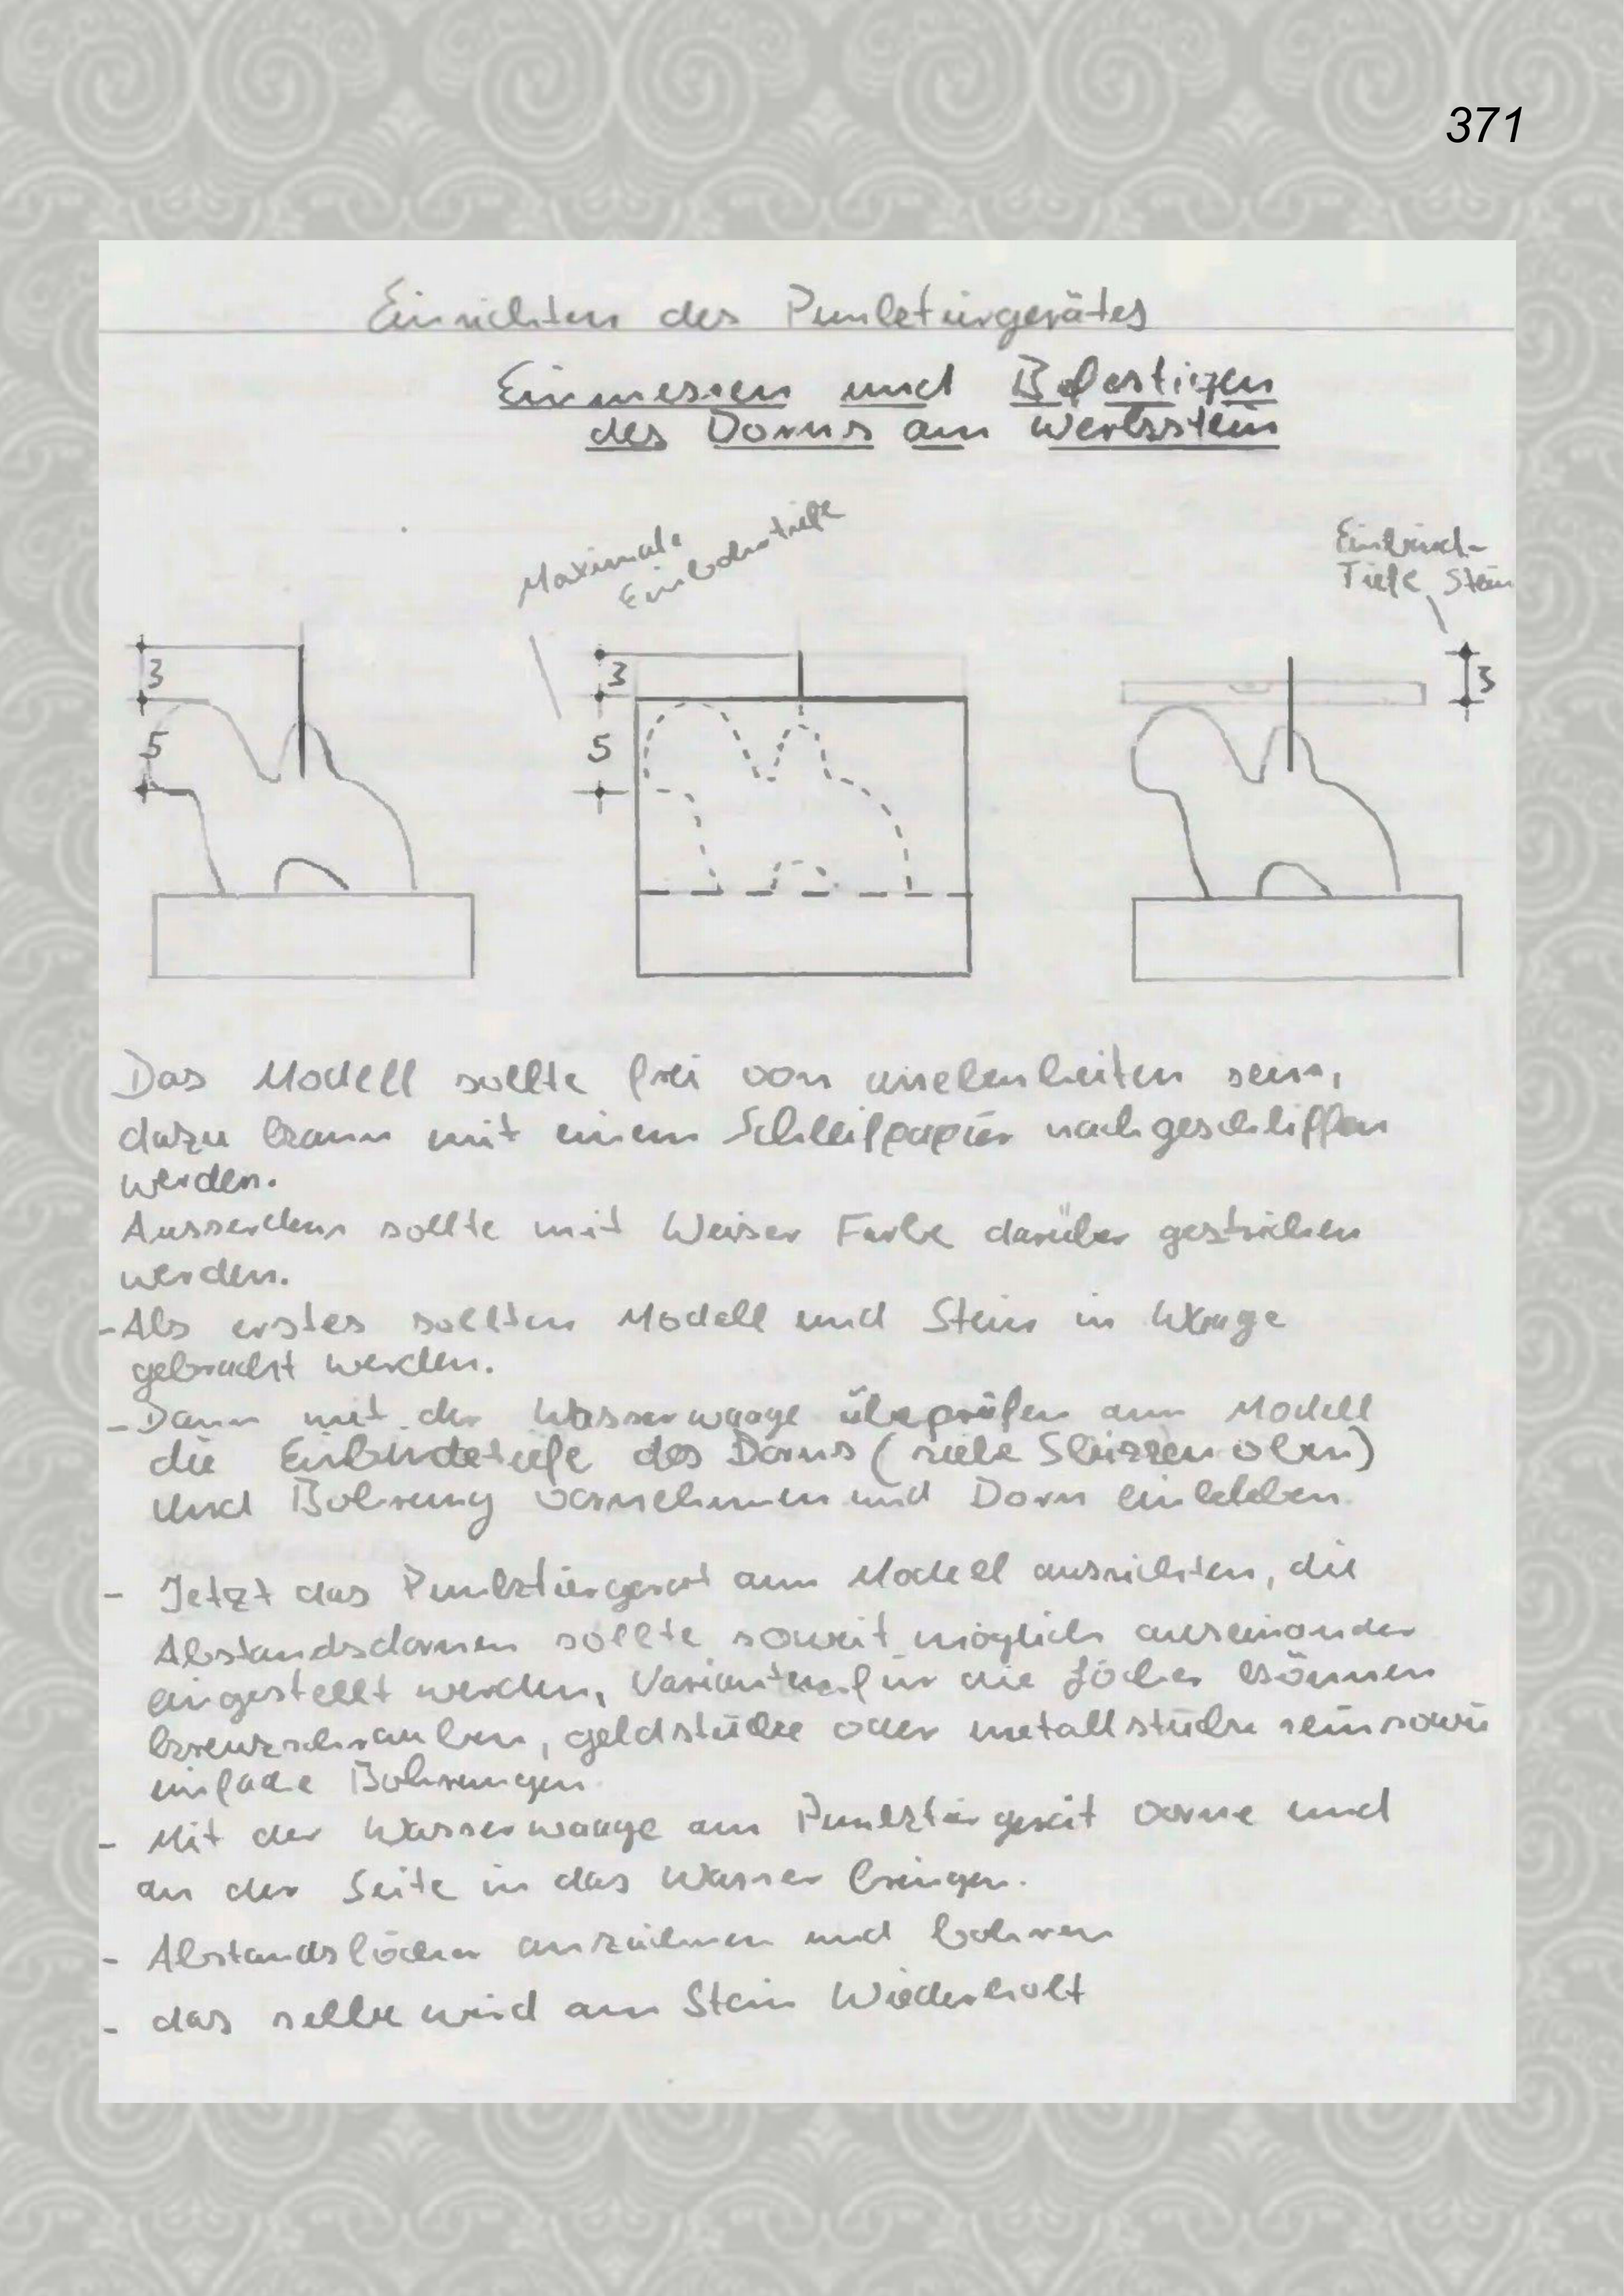 371
Einrichten des Punktürgerätes
Einmessen und Befestigen
des Dorns am Werksstein
Maximale
Einbohrtiefe
Einbind-
Tiefe Stein
3
3
3
5
5
Das Modell sollte frei von unebenheiten sein,
dazu kann mit einem Schleifpapier nachgeschliffen
werden.
Ausserdem sollte mit Weiser Farbe darüber gestrichen
werden.
-Als erstes sollten Modell und Stein in Waage
gebracht werden.
-Dann mit der Wasserwaage überprüfen am Modell
die Einbindetiefe des Dorns (siehe Skizzen oben)
und Bohrung vornehmen und Dorn einkleben.
- Jetzt das Punktiergerät am Modell ausrichten, die
Abstandsdornen sollte soweit möglich auseinander
eingestellt werden, Varianten für die Löcher können
kreuzschrauben, geldstücke oder metallstücke sein sowie
einfache Bohrungen.
- Mit der Wasserwaage am Punktiergerät vorne und
an der Seite in das Wasser bringen.
- Abstandslöcher anzeichnen und bohren
- das selbe wird am Stein Wiederholt